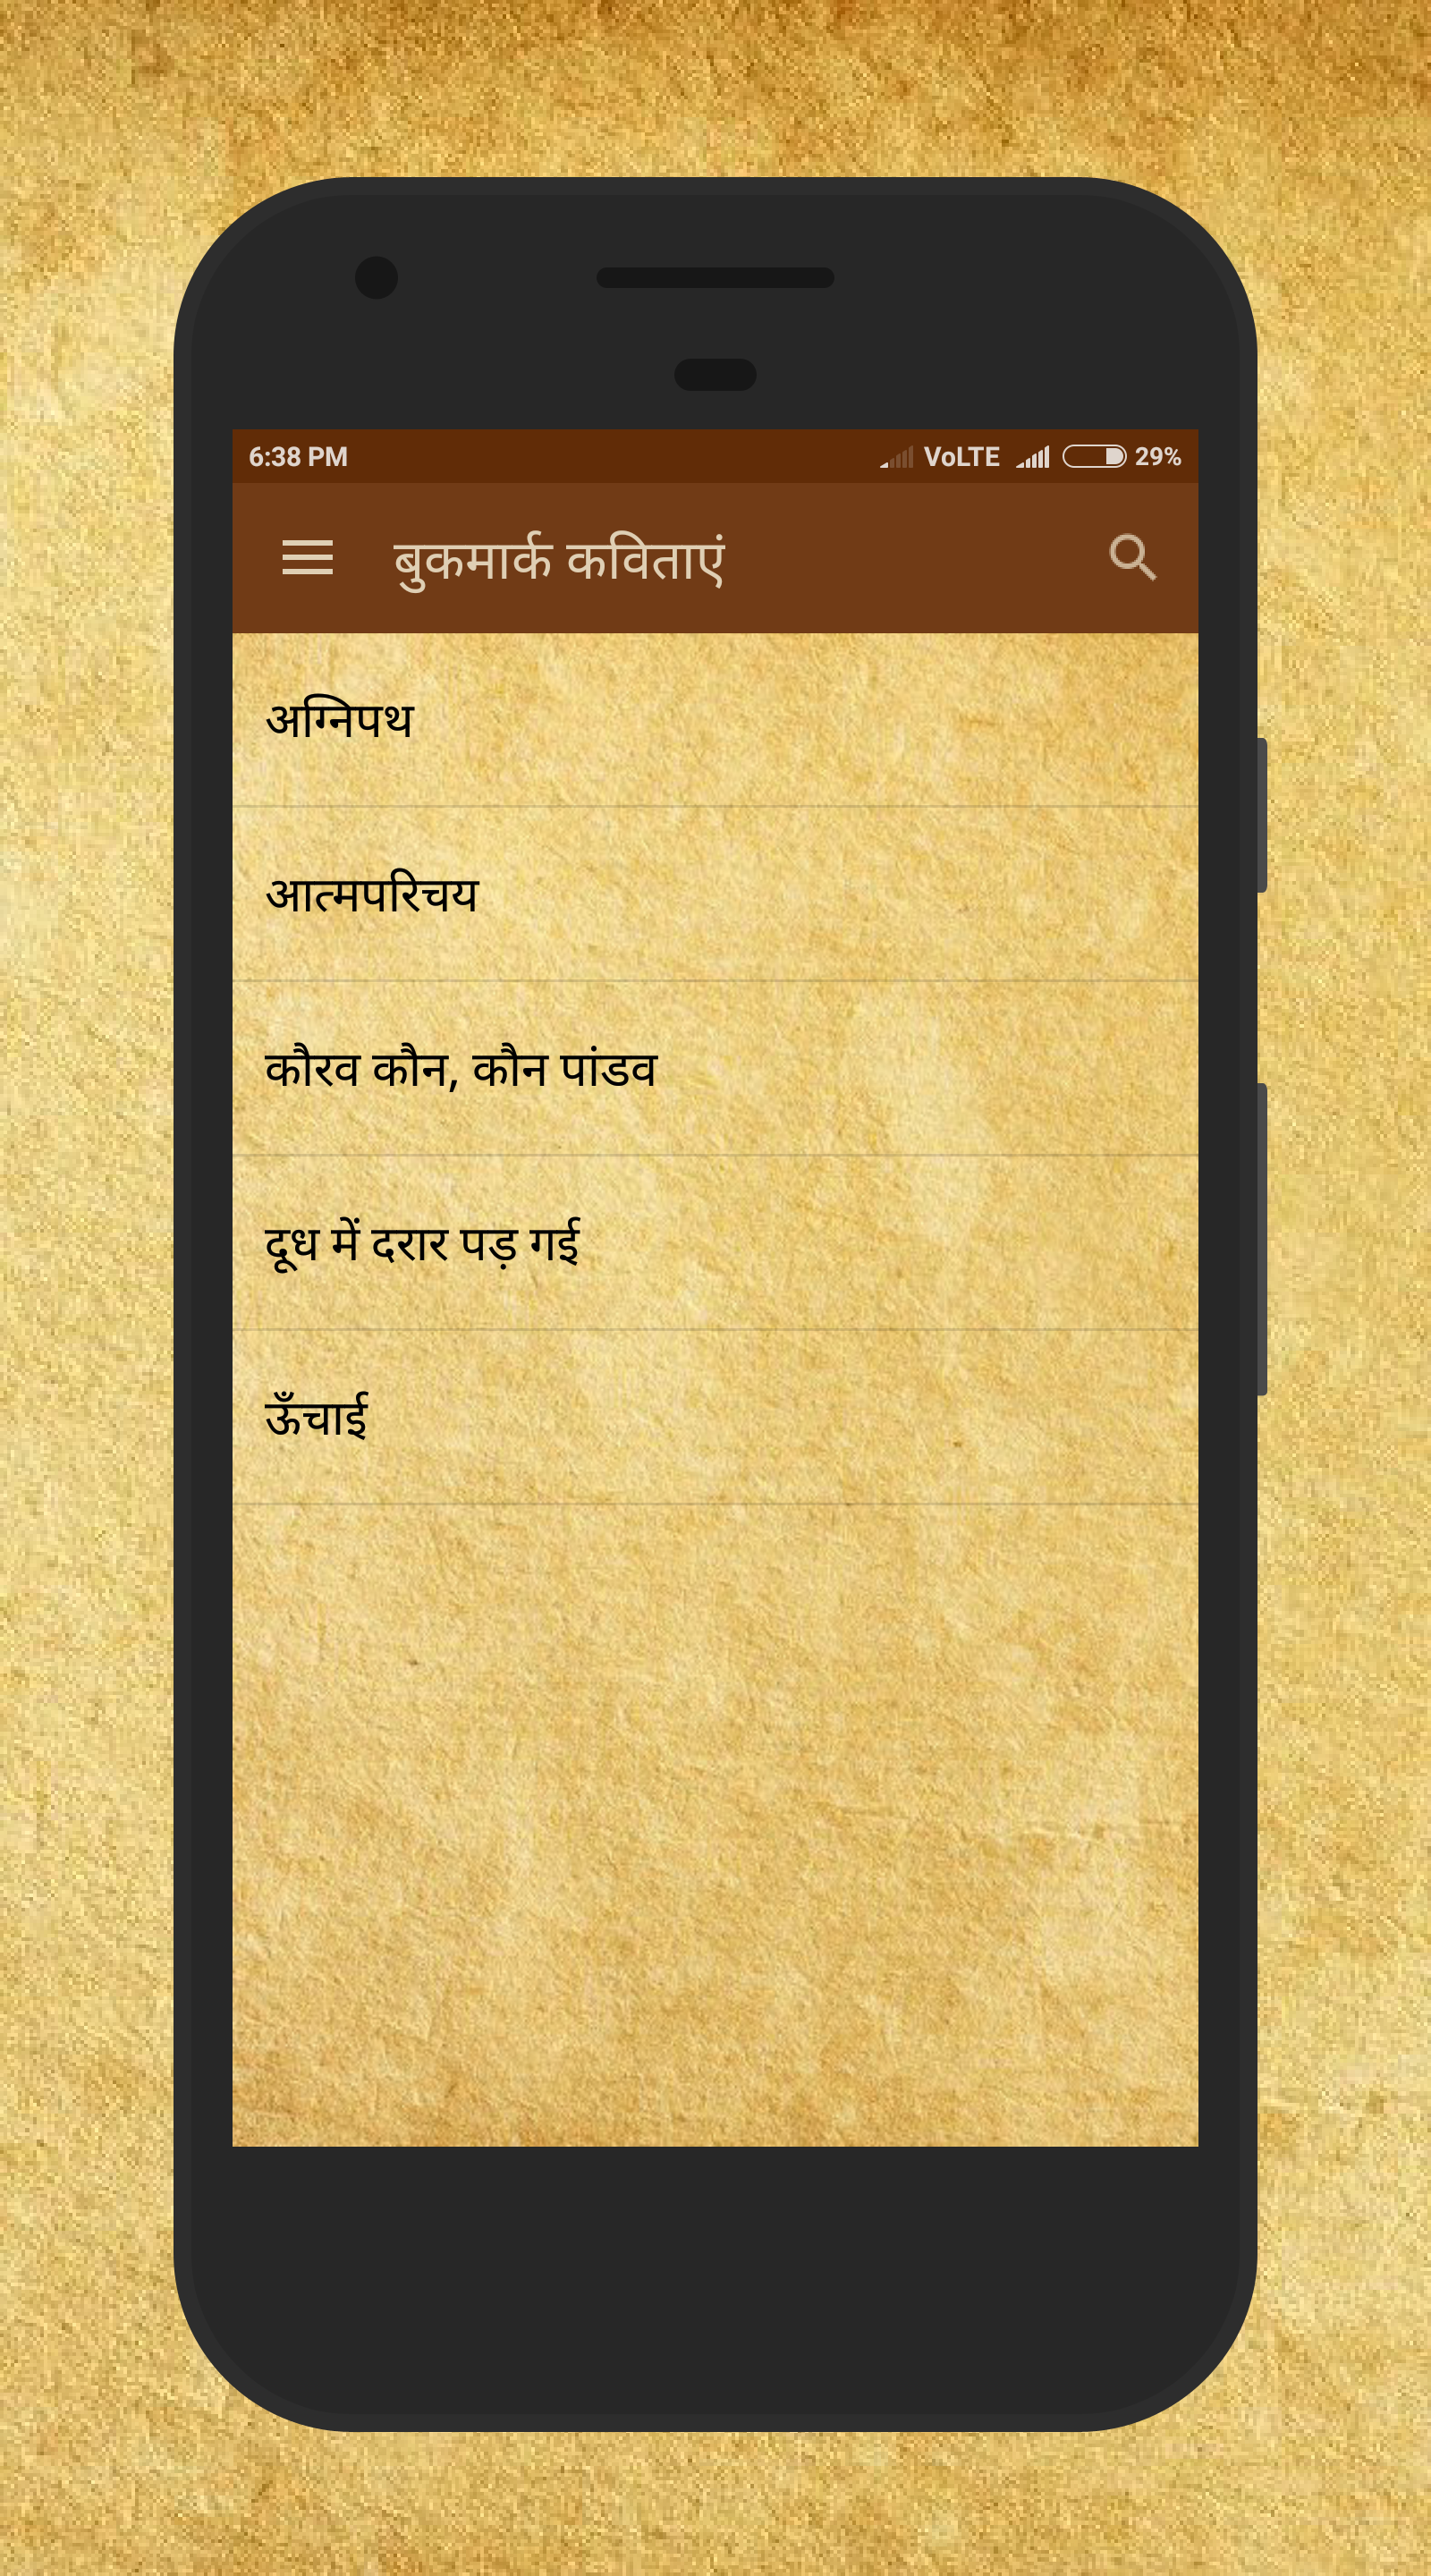 6:38 PM VoLTE 29%
बुकमार्क कविताएं
अग्निपथ
आत्मपरिचय
कौरव कौन, कौन पांडव
दूध में दरार पड़ गई
ऊँचाई